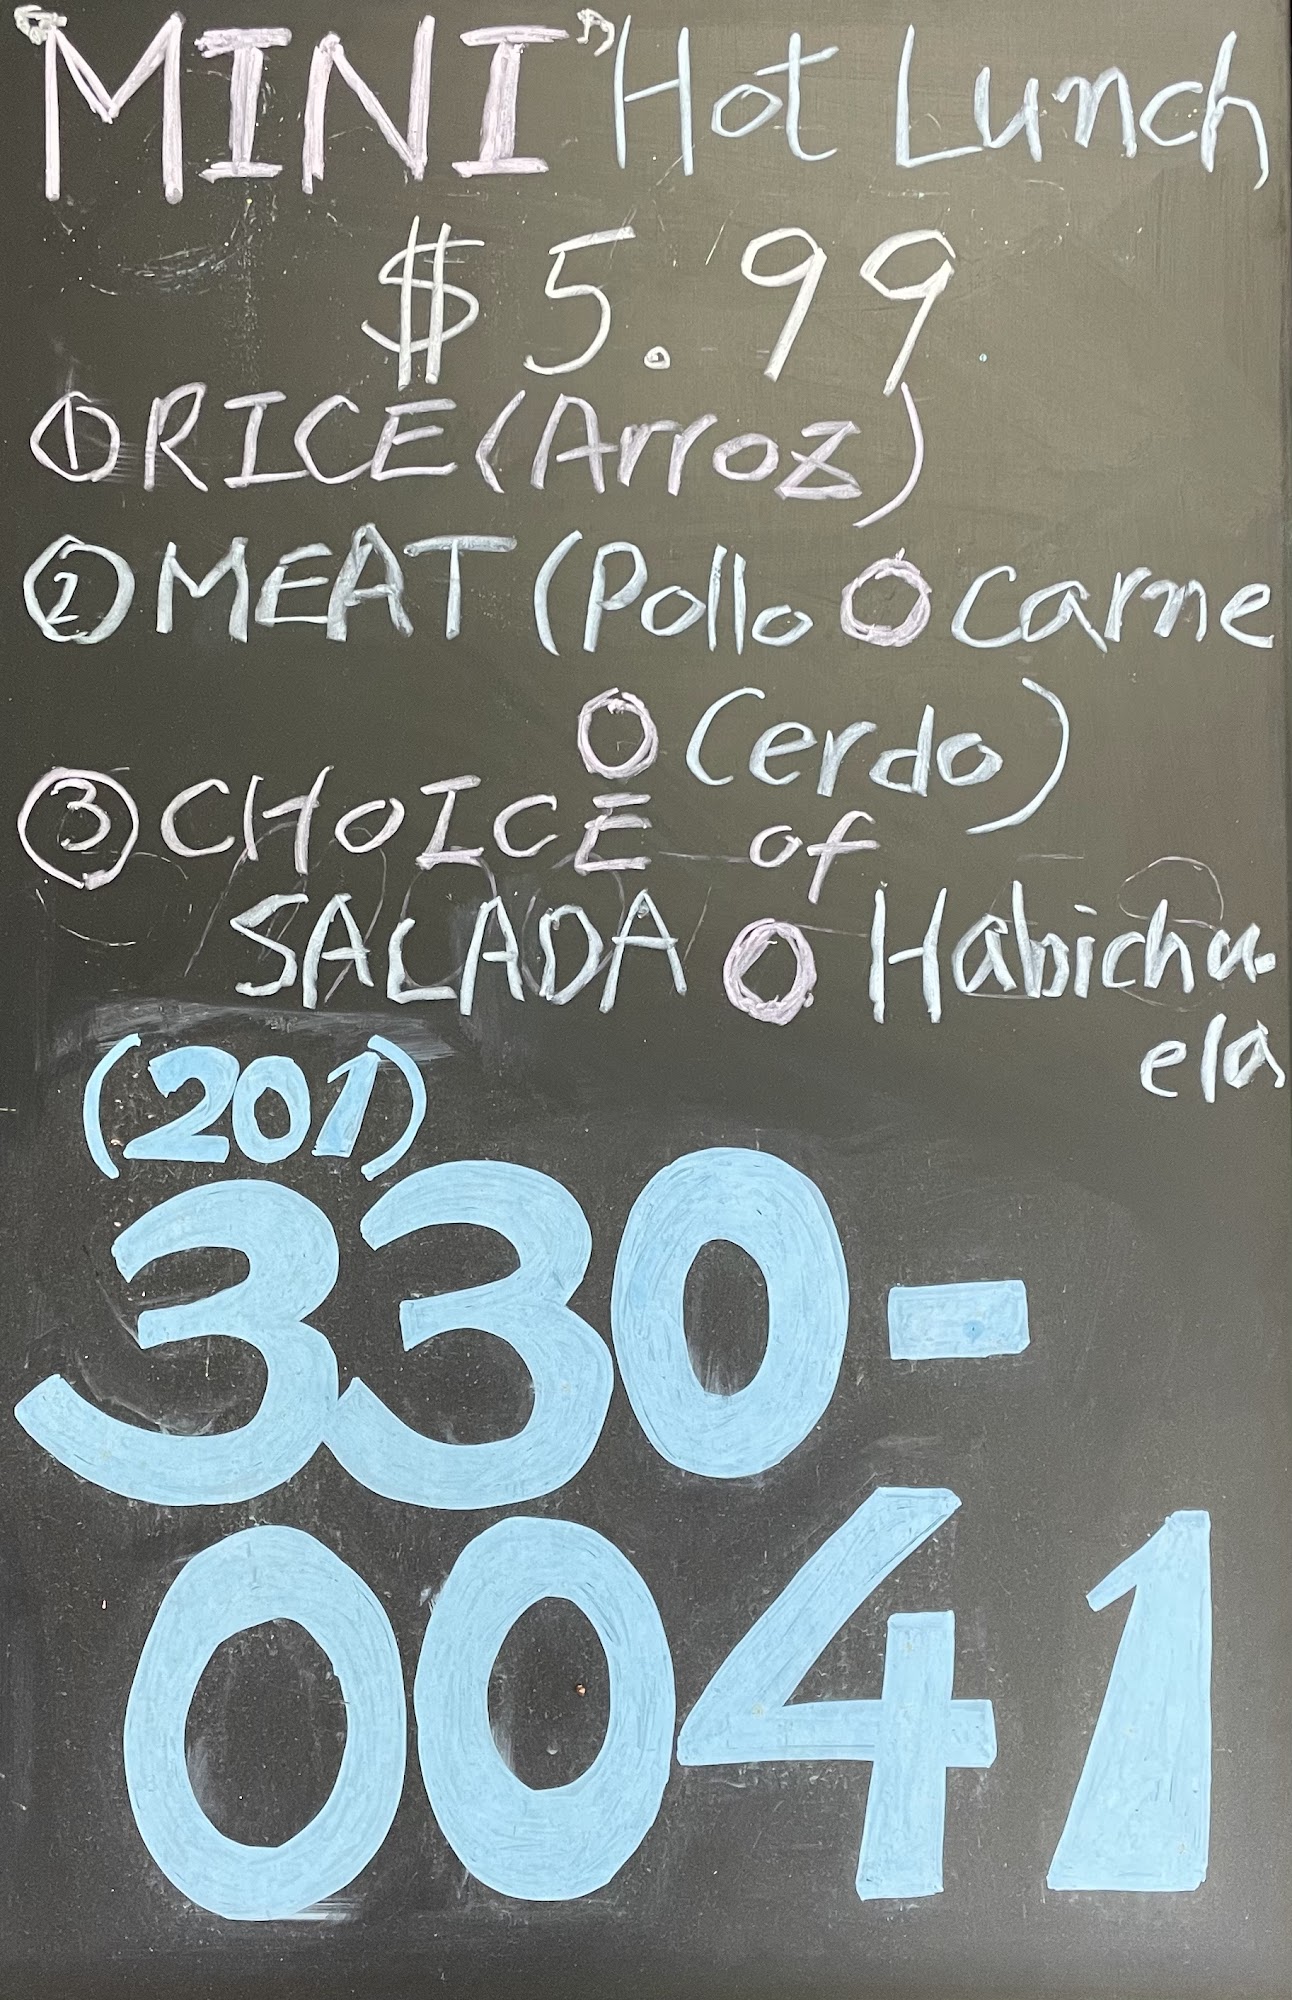 "MINI" Hot Lunch
$5.99
① RICE (Arroz)
② MEAT (Pollo O Carne
O Cerdo)
③ CHOICE of
SALADA O Habichu-
ela
(201)
330-
0041